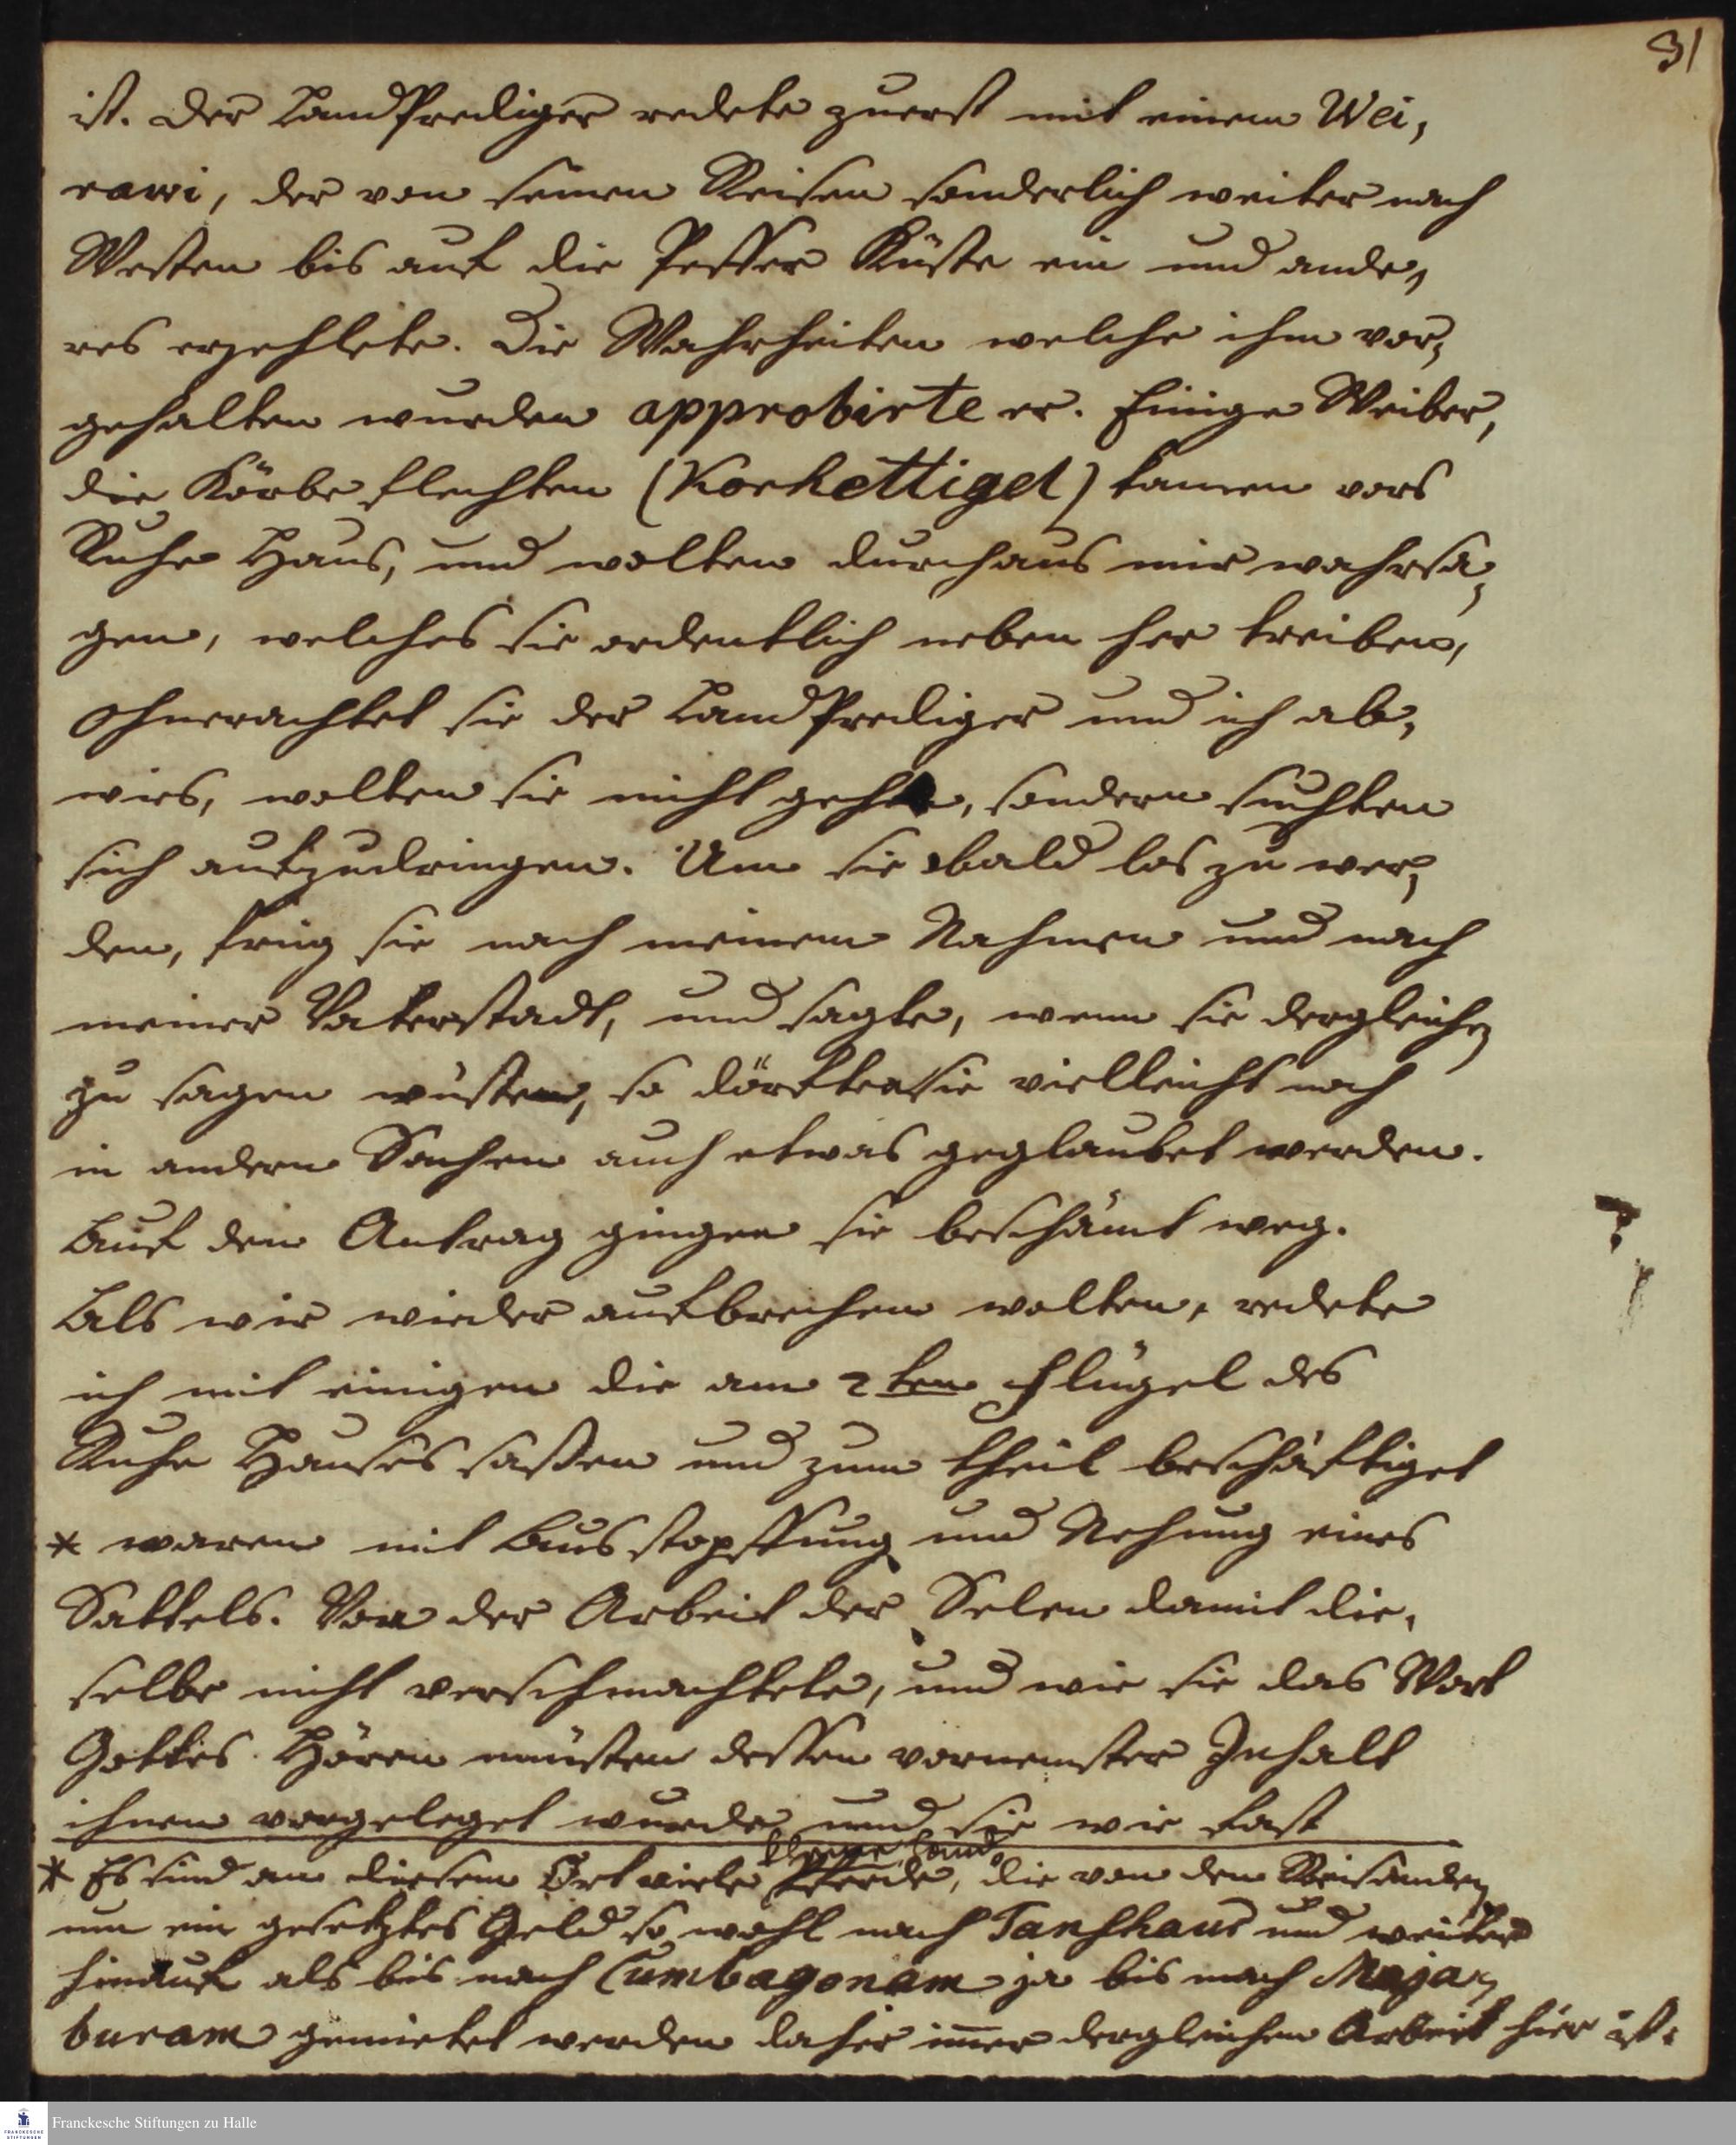 31
ist. Der LandPrediger redete zuerst mit einem Wei,
rawi, der von seinen Reisen sonderlich weiter nach
Westen bis auf die Peffer Küste ein und ande,
res erzehlete. Die Wahrheiten welche ihm vor,
gehalten wurden approbirte er. Einige Weiber,
die Körbe flechten (Korhettigel) kamen vors
Ruhe Haus, und wolten durchaus mir wahrsa,
gen, welches sie ordentlich neben her treiben,
Ohnerachtet sie der LandPrediger und ich ab,
wies, wolten sie nicht gehen, sondern suchten
sich aufzudringen. Um sie bald los zu wer,
den, frug sie nach meinem Nahmen und nach
meiner Vaterstadt, und sagte, wenn sie dergleichen
zu sagen wüsten, so dörften sie vielleicht noch
in andern Sachen auch etwas geglaubet werden.
Auf den Antrag gingen sie beschämt weg.
Als wir wieder aufbrechen wolten, redete
ich mit einigen die am 2ten Flügel des
Ruhe Hauses saßen und zum theil beschäftiget
* waren mit Ausstopffung und Nehung eines
Sattels. Von der Arbeit der Selen damit die,
selbe nicht verschmachtete, und wie sie das Wort
Gottes Hören müsten dessen vornemster Inhalt
ihnen vorgeleget wurde und sie wie fast
* Es sind an diesem Ort viele Pferde, die von den Reisenden
um ein gesetztes Geld so wohl nach Tanschaur und weiter
hinauf als bis nach Cumbagonam ja bis nach Maja,
buram gemietet werden daher immer dergleichen Arbeit hier ist.
Franckesche Stiftungen zu Halle
FRANCKESCHE STIFTUNGEN